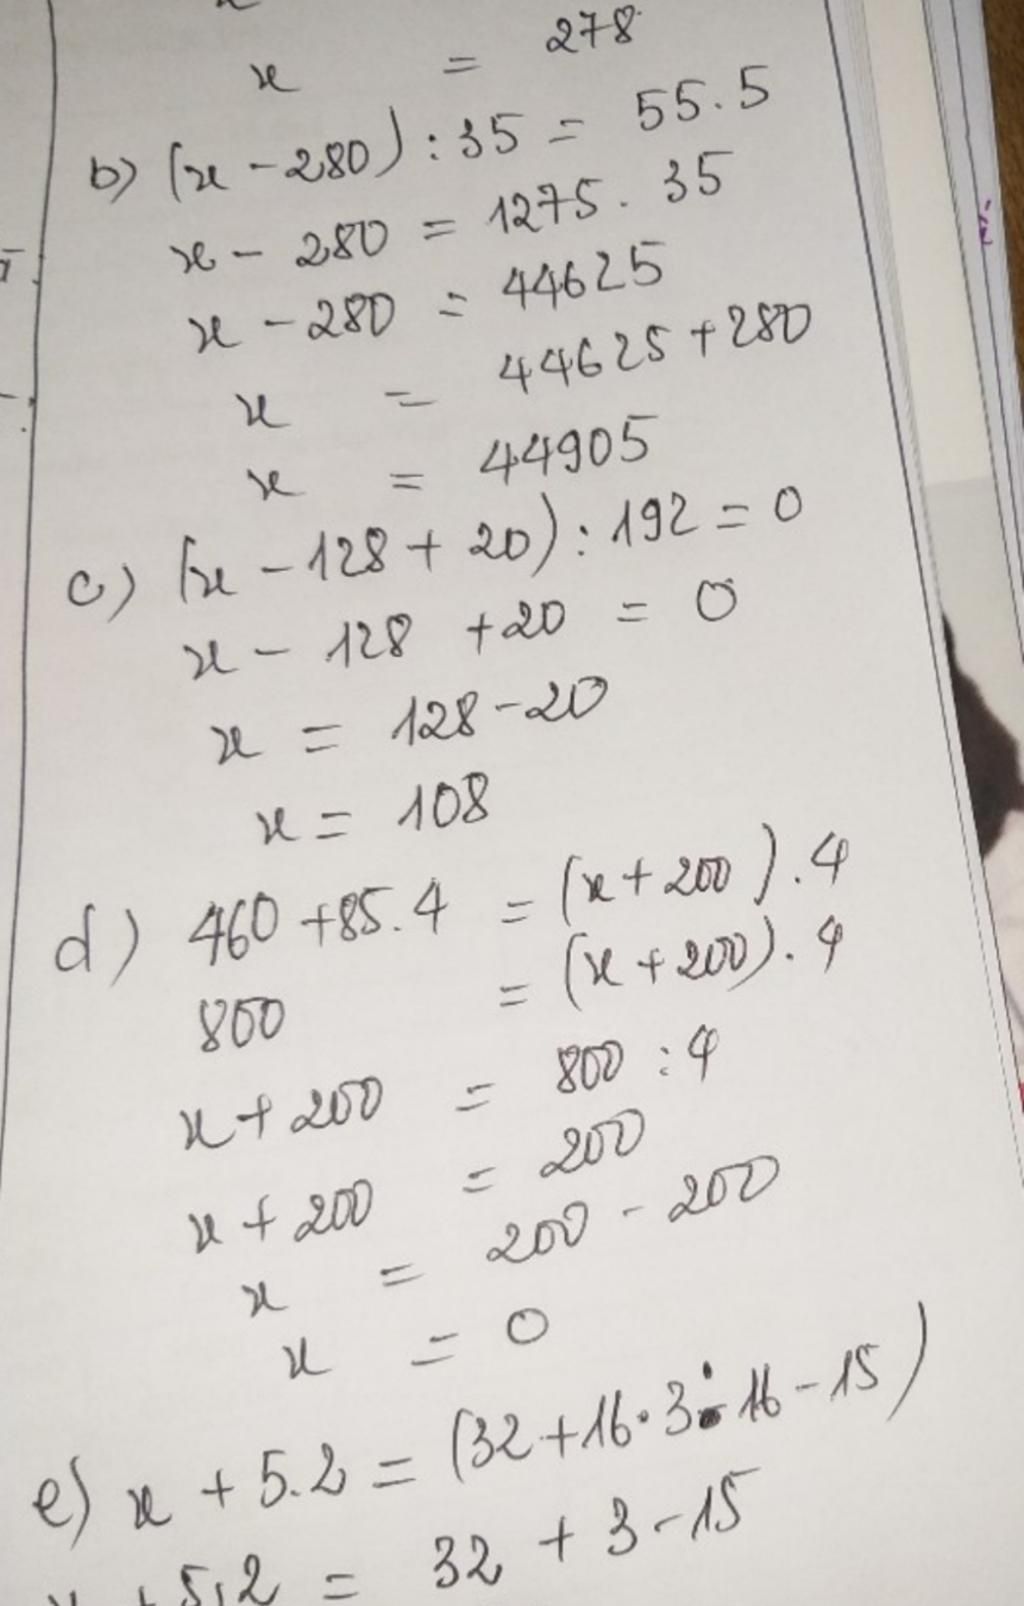 x = 278
b) (x - 280) : 35 = 55.5
x - 280 = 1275 . 35
x - 280 = 44625
x = 44625 + 280
x = 44905
c) (x - 128 + 20) : 192 = 0
x - 128 + 20 = 0
x = 128 - 20
x = 108
d) 460 + 85.4 = (x + 200).4
800 = (x + 200).4
x + 200 = 800 : 4
x + 200 = 200
x = 200 - 200
x = 0
e) x + 5.2 = (32 + 16.3:16 - 15)
x + 5.2 = 32 + 3 - 15